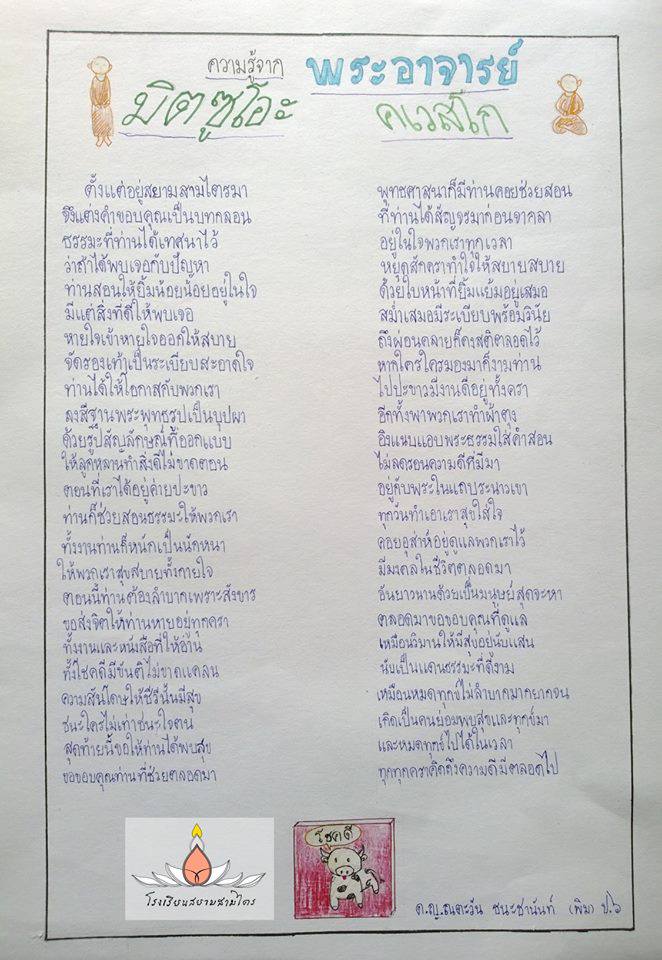 ความรู้จาก พระอาจารย์
มิตซูโอะ คเวสโก
ตั้งแต่อยู่สยามสามไตรมา พุทธศาสนาก็มีท่านคอยช่วยสอน
จึงแต่งคำขอบคุณเป็นบทกลอน ที่ท่านได้สัญจรมาก่อนจากลา
ธรรมะที่ท่านได้เทศนาไว้ อยู่ในใจพวกเราทุกเวลา
ว่าถ้าได้พบเจอกับปัญหา หยุดสักคราทำใจให้สบายสบาย
ท่านสอนให้ยิ้มน้อยน้อยอยู่ในใจ ด้วยใบหน้าที่ยิ้มแย้มอยู่เสมอ
มีแต่สิ่งที่ดีให้พบเจอ สม่ำเสมอมีระเบียบพร้อมวินัย
หายใจเข้าหายใจออกให้สบาย ถึงผ่อนคลายก็คงสติตลอดไว้
จัดรองเท้าเป็นระเบียบสะอาดใจ หากใครใครมองมาก็งามท่าน
ท่านได้ให้โอกาสกับพวกเรา ไปปะขาวมีงานดีอยู่ทั้งครา
ลงสีฐานพระพุทธรูปเป็นบุปผา อีกทั้งพาพวกเราทำผ้าตุง
ด้วยรูปสัญลักษณ์ที่ออกแบบ อิงแนบแอบพระธรรมใส่คำสอน
ให้ลูกหลานทำสิ่งดีไม่ขาดตอน ไม่ลดรอนความดีที่มีมา
ตอนที่เราได้อยู่ค่ายปะขาว อยู่กับพระในแถบระนาวเขา
ท่านก็ช่วยสอนธรรมะให้พวกเรา ทุกวันทำเอาเราสุขใส่ใจ
ทั้งงานท่านก็หนักเป็นนักหนา คอยอุส่าห์อยู่ดูแลพวกเราไว้
ให้พวกเราสุขสบายทั้งกายใจ มีมงคลในชีวิตตลอดมา
ตอนนี้ท่านต้องลำบากเพราะสังขาร อันยาวนานด้วยเป็นมนุษย์สุดจะหา
ขอส่งจิตให้ท่านหายอยู่ทุกครา ตลอดมาขอขอบคุณที่ดูแล
ทั้งงานและหนังสือที่ให้อ่าน เหมือนวิมานให้มีสุขอยู่นับแสน
ทั้งโชคดีมีขันติไม่ขาดแคลน นับเป็นแดนธรรมะที่ดีงาม
ความสันโดษให้ชีวีนั้นมีสุข เหมือนหมดทุกข์ไม่ลำบากมากยากจน
ชนะใครไม่เท่าชนะใจตน เกิดเป็นคนย่อมพบสุขและทุกข์มา
สุดท้ายนี้ขอให้ท่านได้พบสุข และหมดทุกข์ไปได้ในเวลา
ขอขอบคุณท่านที่ช่วยตลอดมา ทุกทุกคราคิดถึงความดีมีตลอดไป
โชคดี
โรงเรียนสยามสามไตร
ด.ญ.ณตะวัน ชนะชานันท์ (พิม) ป.๖